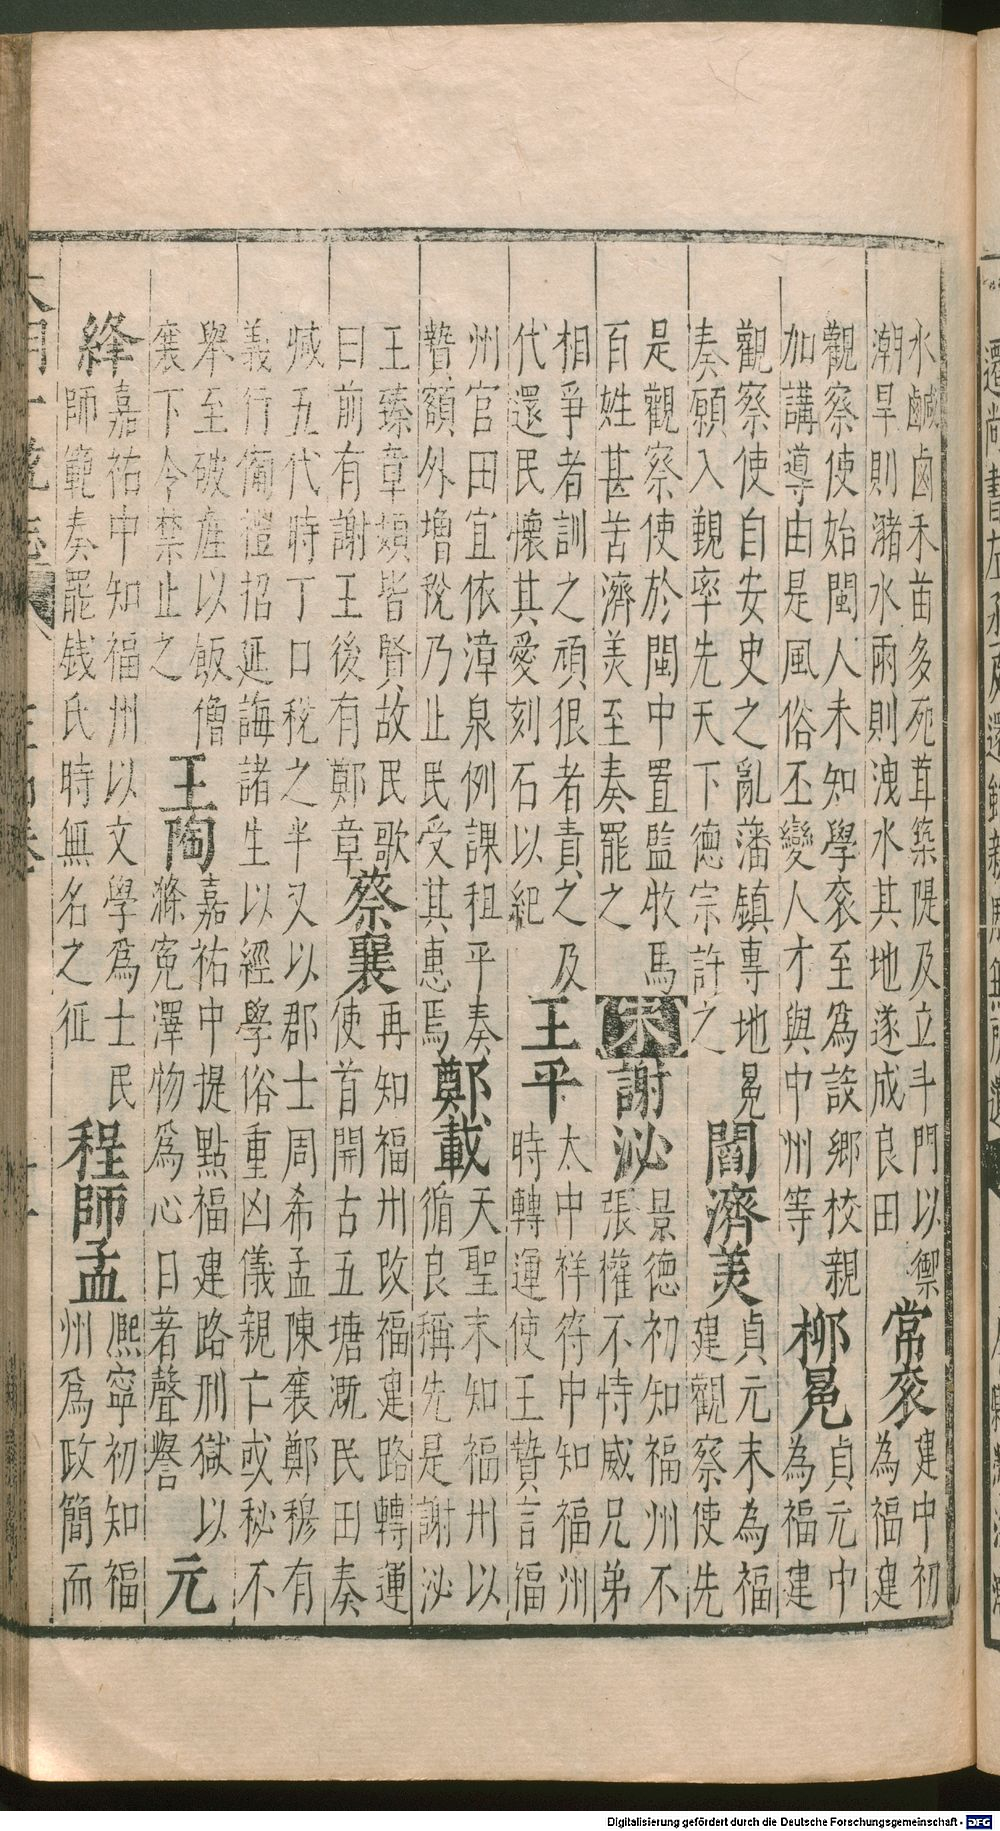 水鹹鹵禾苗多死茸築隄及立斗門以禦
潮旱則瀦水雨則洩水其地遂成良田
常袞
建中初
為福建
觀察使始閩人未知學袞至爲設鄉校親
加講導由是風俗丕變人才與中州等
柳冕
貞元中
為福建
觀察使自安史之亂藩鎮專地冕
奏願入覲率先天下德宗許之
閻濟美
貞元末為福
建觀察使先
是觀察使於閩中置監牧馬
百姓甚苦濟美至奏罷之
宋
謝泌
景德初知福州不
張權不恃威兄弟
相爭者訓之頑很者責之及
代還民懷其愛刻石以紀
王平
太中祥符中知福州
時轉運使王贄言福
州官田宜依漳泉例課租平奏
贄額外增稅乃止民受其惠焉
鄭載
天聖末知福州以
循良稱先是謝泌
王臻章頻皆賢故民歌
曰前有謝王後有鄭章
蔡襄
再知福州改福建路轉運
使首開古五塘溉民田奏
減五代時丁口稅之半又以郡士周希孟陳襄鄭穆有
義行備禮招延誨諸生以經學俗重凶儀親亡或秘不
舉至破產以飯僧
襄下令禁止之
王陶
嘉祐中提點福建路刑獄以
滌冤澤物爲心日著聲譽
元
絳
嘉祐中知福州以文學爲士民
師範奏罷錢氏時無名之征
程師孟
熙寧初知福
州爲政簡而
Digitalisierung gefördert durch die Deutsche Forschungsgemeinschaft - DFG